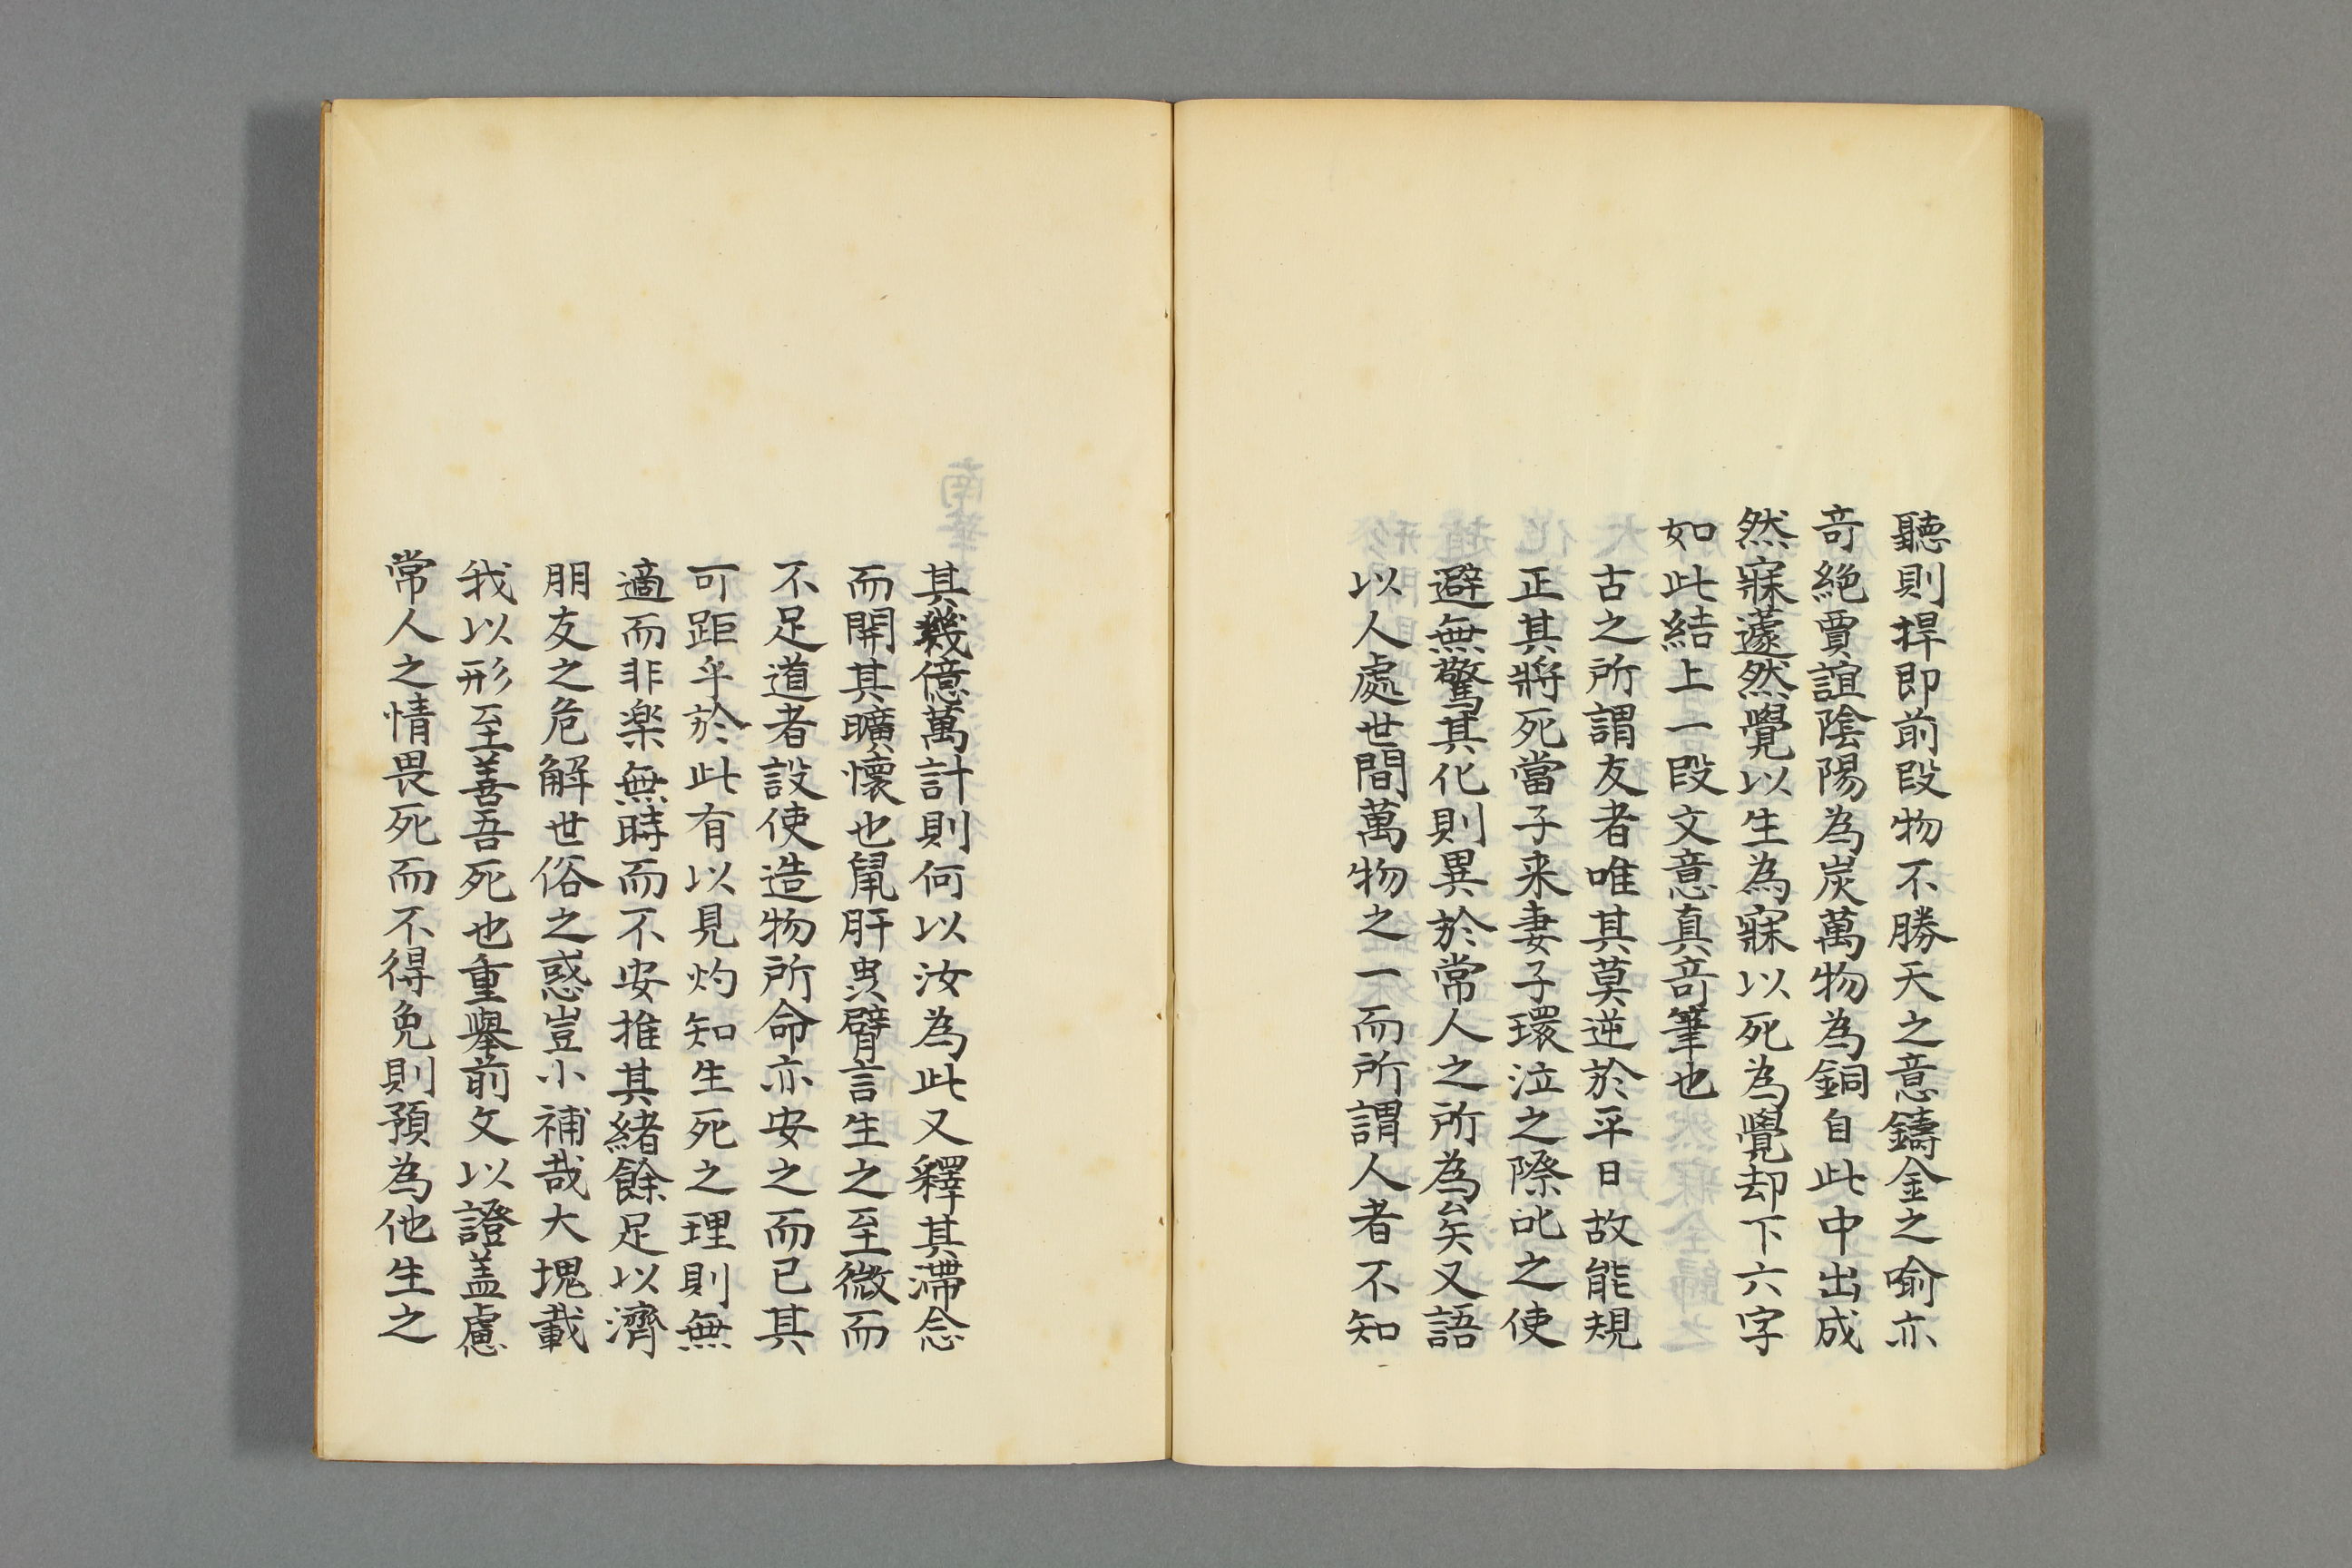 聽則捍即前段物不勝天之意鑄金之喻亦
奇絶賈誼陰陽為炭萬物為銅自此中出成
然寐蘧然覺以生為寐以死為覺却下六字
如此結上一段文意真奇筆也
古之所謂友者唯其莫逆於平日故能規
正其將死當子来妻子環泣之際叱之使
避無驚其化則異於常人之所為矣又語
以人處世間萬物之一而所謂人者不知
其幾億萬計則何以汝為此又釋其滯念
而開其曠懷也鼠肝䖝臂言生之至微而
不足道者設使造物所命亦安之而已其
可距乎於此有以見灼知生死之理則無
適而非楽無時而不安推其緒餘足以濟
朋友之危解世俗之惑豈小補哉大塊載
我以形至善吾死也重舉前文以證盖慮
常人之情畏死而不得免則預為他生之